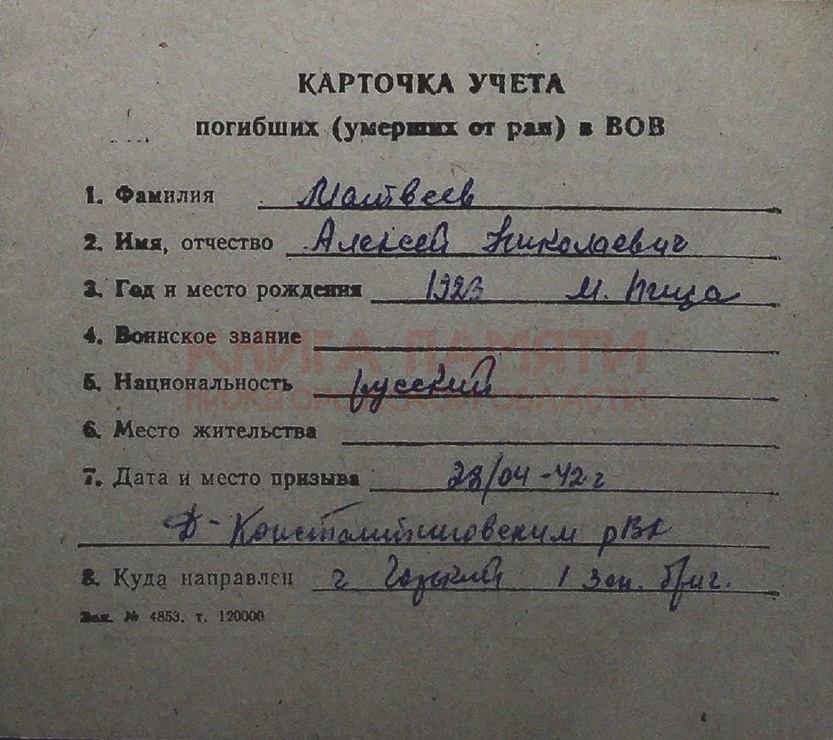 КАРТОЧКА УЧЕТА
погибших (умерших от ран) в ВОВ
1. Фамилия Матвеев
2. Имя, отчество Алексей Николаевич
3. Год и место рождения 1923 М. Пица
4. Воинское звание
КНИГА ПАМЯТИ
5. Национальность русский
НИЖЕГОРОДСКОЙ ОБЛАСТИ
6. Место жительства
7. Дата и место призыва 28/04-42 г
Д-Константиновским рВк
8. Куда направлен г Горький 1 зап. бриг.
Зак. № 4853. т. 120000